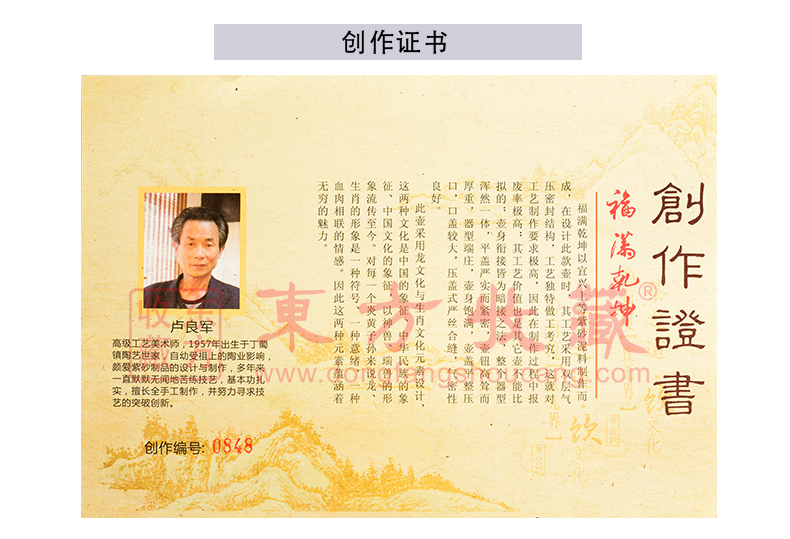 创作证书
創作證書
福满乾坤
福满乾坤以宜兴上等紫砂泥料制作而
成，在设计此款壶时，其工艺采用双层气
压密封结构，工艺独特做工考究，这就对
工艺制作要求极高，因此在制作过程中报
废率极高；其工艺价值也是其它壶不能比
拟的；壶身衔接皆为暗接之法，整体器型
浑然一体，平盖严实而紧密，壶钮高耸而
厚重，器型端庄，壶身饱满，壶盖平整压
口，口盖较大，压盖式严丝合缝，气密性
良好。
此壶采用龙文化与生肖文化元素设计，
这两种文化是中国的象征、中华民族的象
征、中国文化的象征。以神兽、瑞兽的形
象流传至今。对每一个炎黄子孙来说，龙、
生肖的形象是一种符号、一种意绪、一种
血肉相联的情感。因此这两种元素蕴涵着
无穷的魅力。
卢良军
高级工艺美术师，1957年出生于丁蜀
镇陶艺世家，自幼受祖上的陶业影响，
颇爱紫砂制品的设计与制作，多年来
一直默默无闻地苦练技艺，基本功扎
实，擅长全手工制作，并努力寻求技
艺的突破创新。
创作编号: 0848
東方收藏®
www.dongfangshoucang.com
饮文化
饮文化